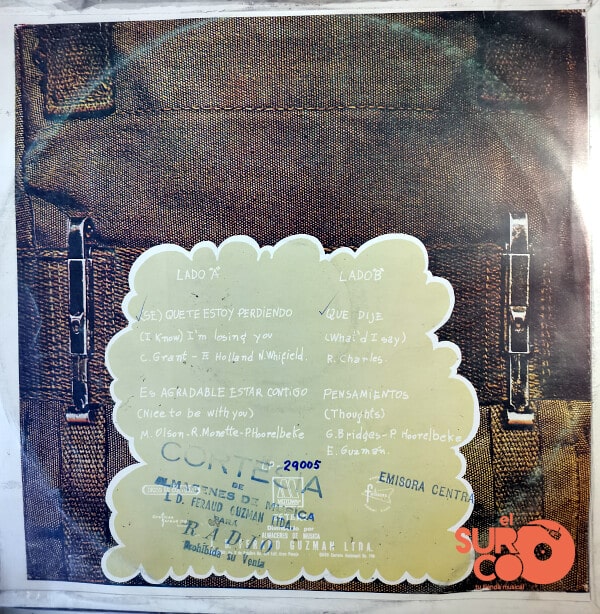 LADO "A"
(SE) QUE TE ESTOY PERDIENDO
(I Know) I'm losing you
C. Grant - E Holland N. Whifield.
ES AGRADABLE ESTAR CONTIGO
(Nice to be with you)
M. Olson - R. Monette - P. Hoorelbeke
LADO "B"
QUE DIJE
(What'd I say)
R. Charles.
PENSAMIENTOS
(Thoughts)
G. Bridges - P. Hoorelbeke
E. Guzmán.
LP- 29005
CORTESIA
DE
ALMACENES DE MUSICA
J. D. FERAUD GUZMAN LTDA.
PARA
RADIO
Prohibida su Venta
EMISORA CENTRA
Distribuido por
ALMACENES DE MUSICA
FERAUD GUZMAN LTDA.
el
SURCO
tu tienda musical